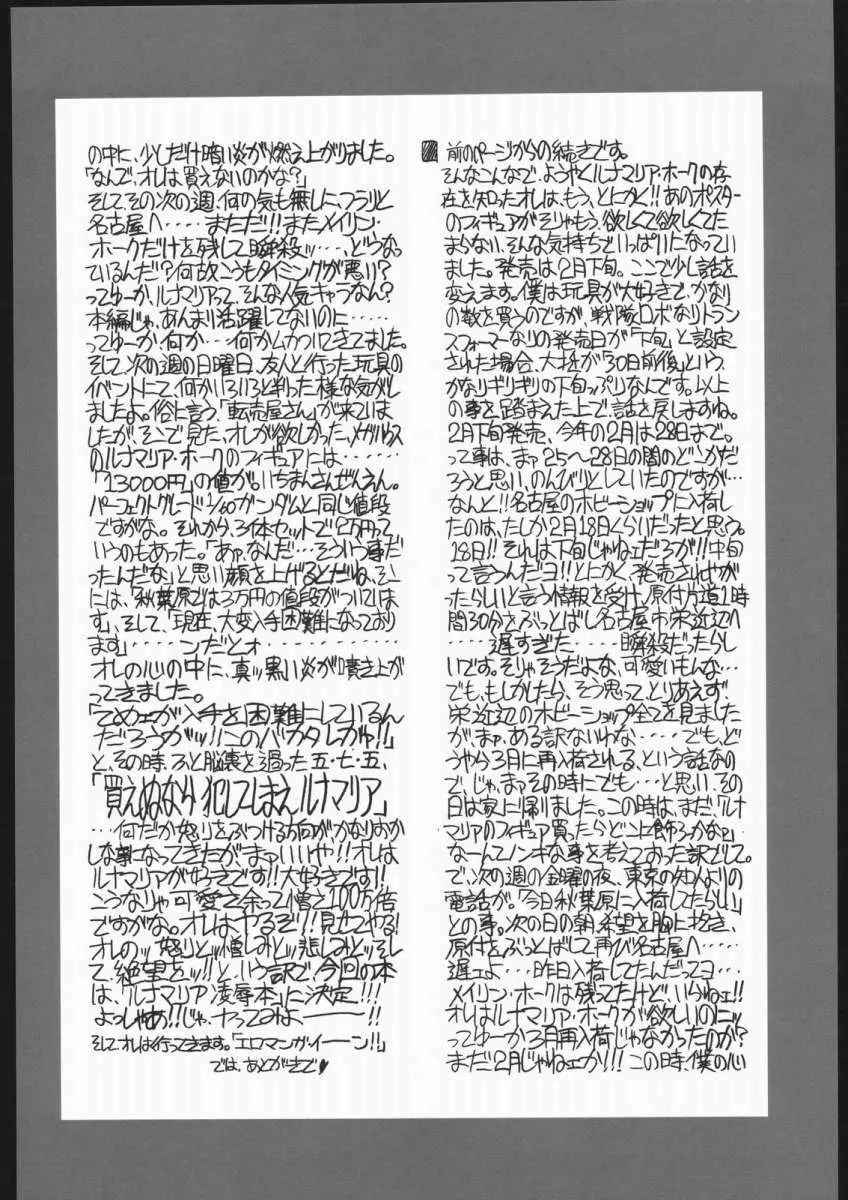 前のページからの続きです。
そんなこんなで、ようやくルナマリア・ホークの存
在を知ったオレは、もう、とにかく!!あのポスター
のフィギュアがそりゃもう、欲しくて欲しくてた
まらない、そんな気持ちでいっぱいになってい
ました。発売は2月下旬。ここで少し話を
変えます。僕は玩具が大好きで、かなり
の数を買うのですが、戦隊ロボなりトラン
スフォーマーなりの発売日が「下旬」と設定
された場合、大抵が「30日前後」という、
かなりギリギリの下旬っぷりなんです。以上
の事を踏まえた上で話を戻しますね。
2月下旬発売、今年の2月は28日まで。
って事は、まァ25〜28日の間のどこかだ
ろうと思い、のんびりとしていたのですが…
なんと!!名古屋のホビーショップに入荷し
たのは、たしか2月18日くらいだったと思う。
18日!!それは下旬じゃねェだろが!!中旬
って言うんだヨ!!とにかく、発売されやが
ったらしいと言う情報を受け、原付片道1時
間30分をぶっとばし名古屋市栄近辺へ
……遅すぎた……瞬殺だったらし
いです。そりゃそうだよな、可愛いもんな…
でも、もしかしたら、そう思って、とりあえず
栄近辺のホビーショップ全てを見ました
が、まァ、ある訳ないわな……でも、ど
うやら3月に再入荷される、という話なの
で、じゃ、まァその時にでも…と思い、その
日は家に帰りました。この時は、まだ、「ルナ
マリアのフィギュア買ったらどこに飾ろかなァ」
なーんてノンキな事を考えておった訳でして。
で、次の週の金曜の夜、東京の知人よりの
電話が。「今日秋葉原に入荷したらしい」
との事。次の日の朝、希望を胸に抱き、
原付をぶっとばして再び名古屋へ……
遅ェよ…昨日入荷してたんだってヨ…
メイリン・ホークは残ってたけど、いらねェ!!
オレはルナマリア・ホークが欲しいのニッ
ってゆーか3月再入荷じゃなかったのか?
まだ2月じゃねェか!!!この時、僕の心
の中に、少しだけ暗い炎が燃え上がりました。
「なんで、オレは買えないのかな?」
そしてその次の週、何の気も無しに、フラリと
名古屋へ……まただ!!またメイリン・
ホークだけを残して瞬殺ッ…、どうなっ
ているんだ!?何故こうもタイミングが悪い?
ってゆーか、ルナマリアって、そんな人気キャラなん?
本編じゃ、あんまり活躍してないのに……
ってゆーか、何か…何かムカついてきてました。
そして、次の週の日曜日、友人と行った玩具の
イベントにて、何かいろいろと判った様な気がし
ましたよ。俗に言う「転売屋さん」が来ていま
したが、そこで見た、オレが欲しかった、メガハウス
のルナマリア・ホークのフィギュアには……
「13000円」の値が。いちまんさんぜんえん。
パーフェクトグレード1/60ガンダムと同じ値段
ですがな。それから、3体セットで2万円って
いうのもあった。「あァ、なんだ…そういう事だ
ったんだな」と思い顔を上げるとだね、そこ
には、「秋葉原では3万円の値段がついていま
す」、そして、「現在、大変入手困難になっており
ます」……ンだとォ……
オレの心の中に、真ッ黒い炎が噴き上が
ってきました。
「てめェが入手を困難にしているん
だろうがッ!!このバカタレがァ!!」
と、その時、ふと脳裏を過った五・七・五、
「買えぬなら 犯してしまえ ルナマリア」
…何だか怒りをぶつける方向がかなりおか
しな事になってきたが、まァいいや!!オレは
ルナマリアが好きです!!大好きです!!
こうなりゃ可愛さ余って憎さ100万倍
ですがな。オレはやるぞ!!見せてやる!
オレのッ怒りとッ憎しみとッ悲しみとッそし
て、絶望をッ!!と、いう訳で、今回の本
は、「ルナマリア凌辱本」に決定!!!
よっしゃあ!!!じゃ、ヤってみよーーー!!
そしてオレは行ってきます。「エロマンガイーーン!!」
では、あとがきで♥